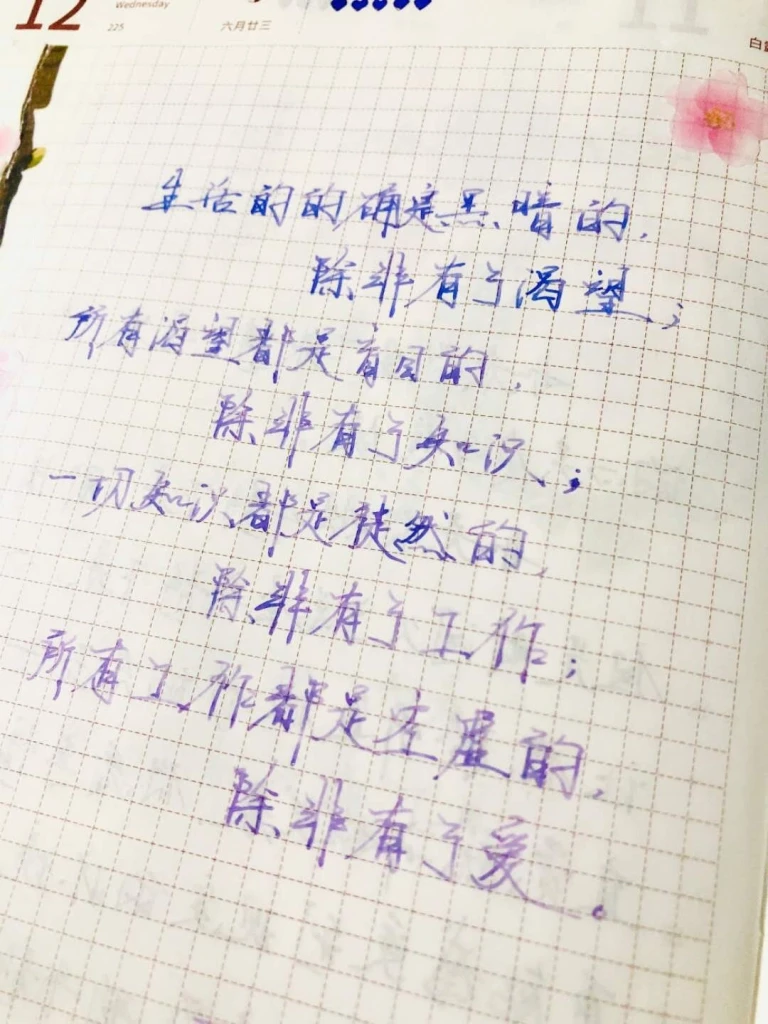 12
Wednesday
225
六月廿三
11
生活的的确是黑暗的，
除非有了渴望；
所有渴望都是盲目的，
除非有了知识；
一切知识都是徒然的，
除非有了工作；
所有工作都是空虚的，
除非有了爱。